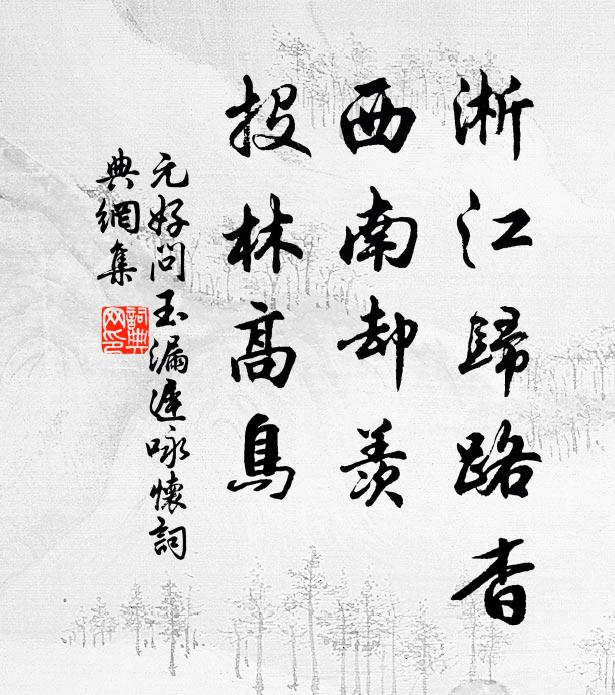 淅江歸路杳
西南却羨
投林高鳥
元好問玉漏遲咏懷詞
典網集
詞典網印